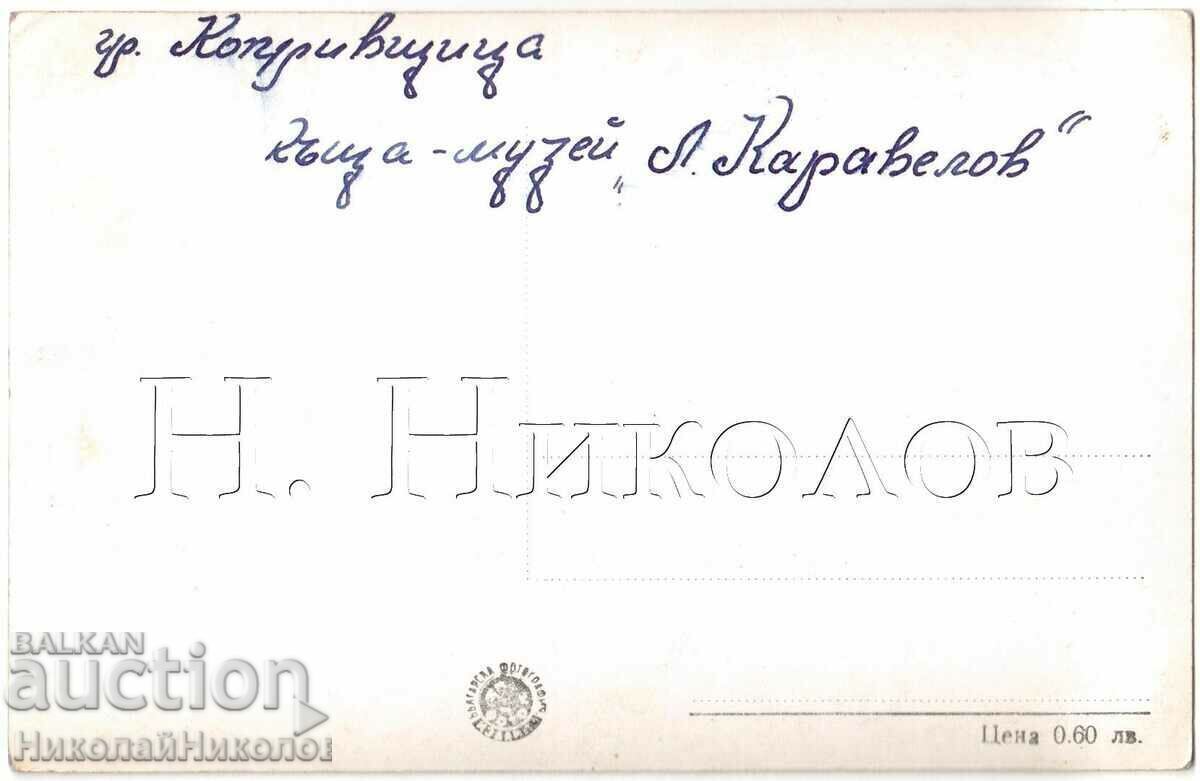 гр. Копривщица
къща-музей „Л. Каравелов“
Н. Николов
BALKAN
auction
НиколайНиколов
БЪЛГАРСКА ФОТОГРАФИЯ
Цена 0.60 лв.